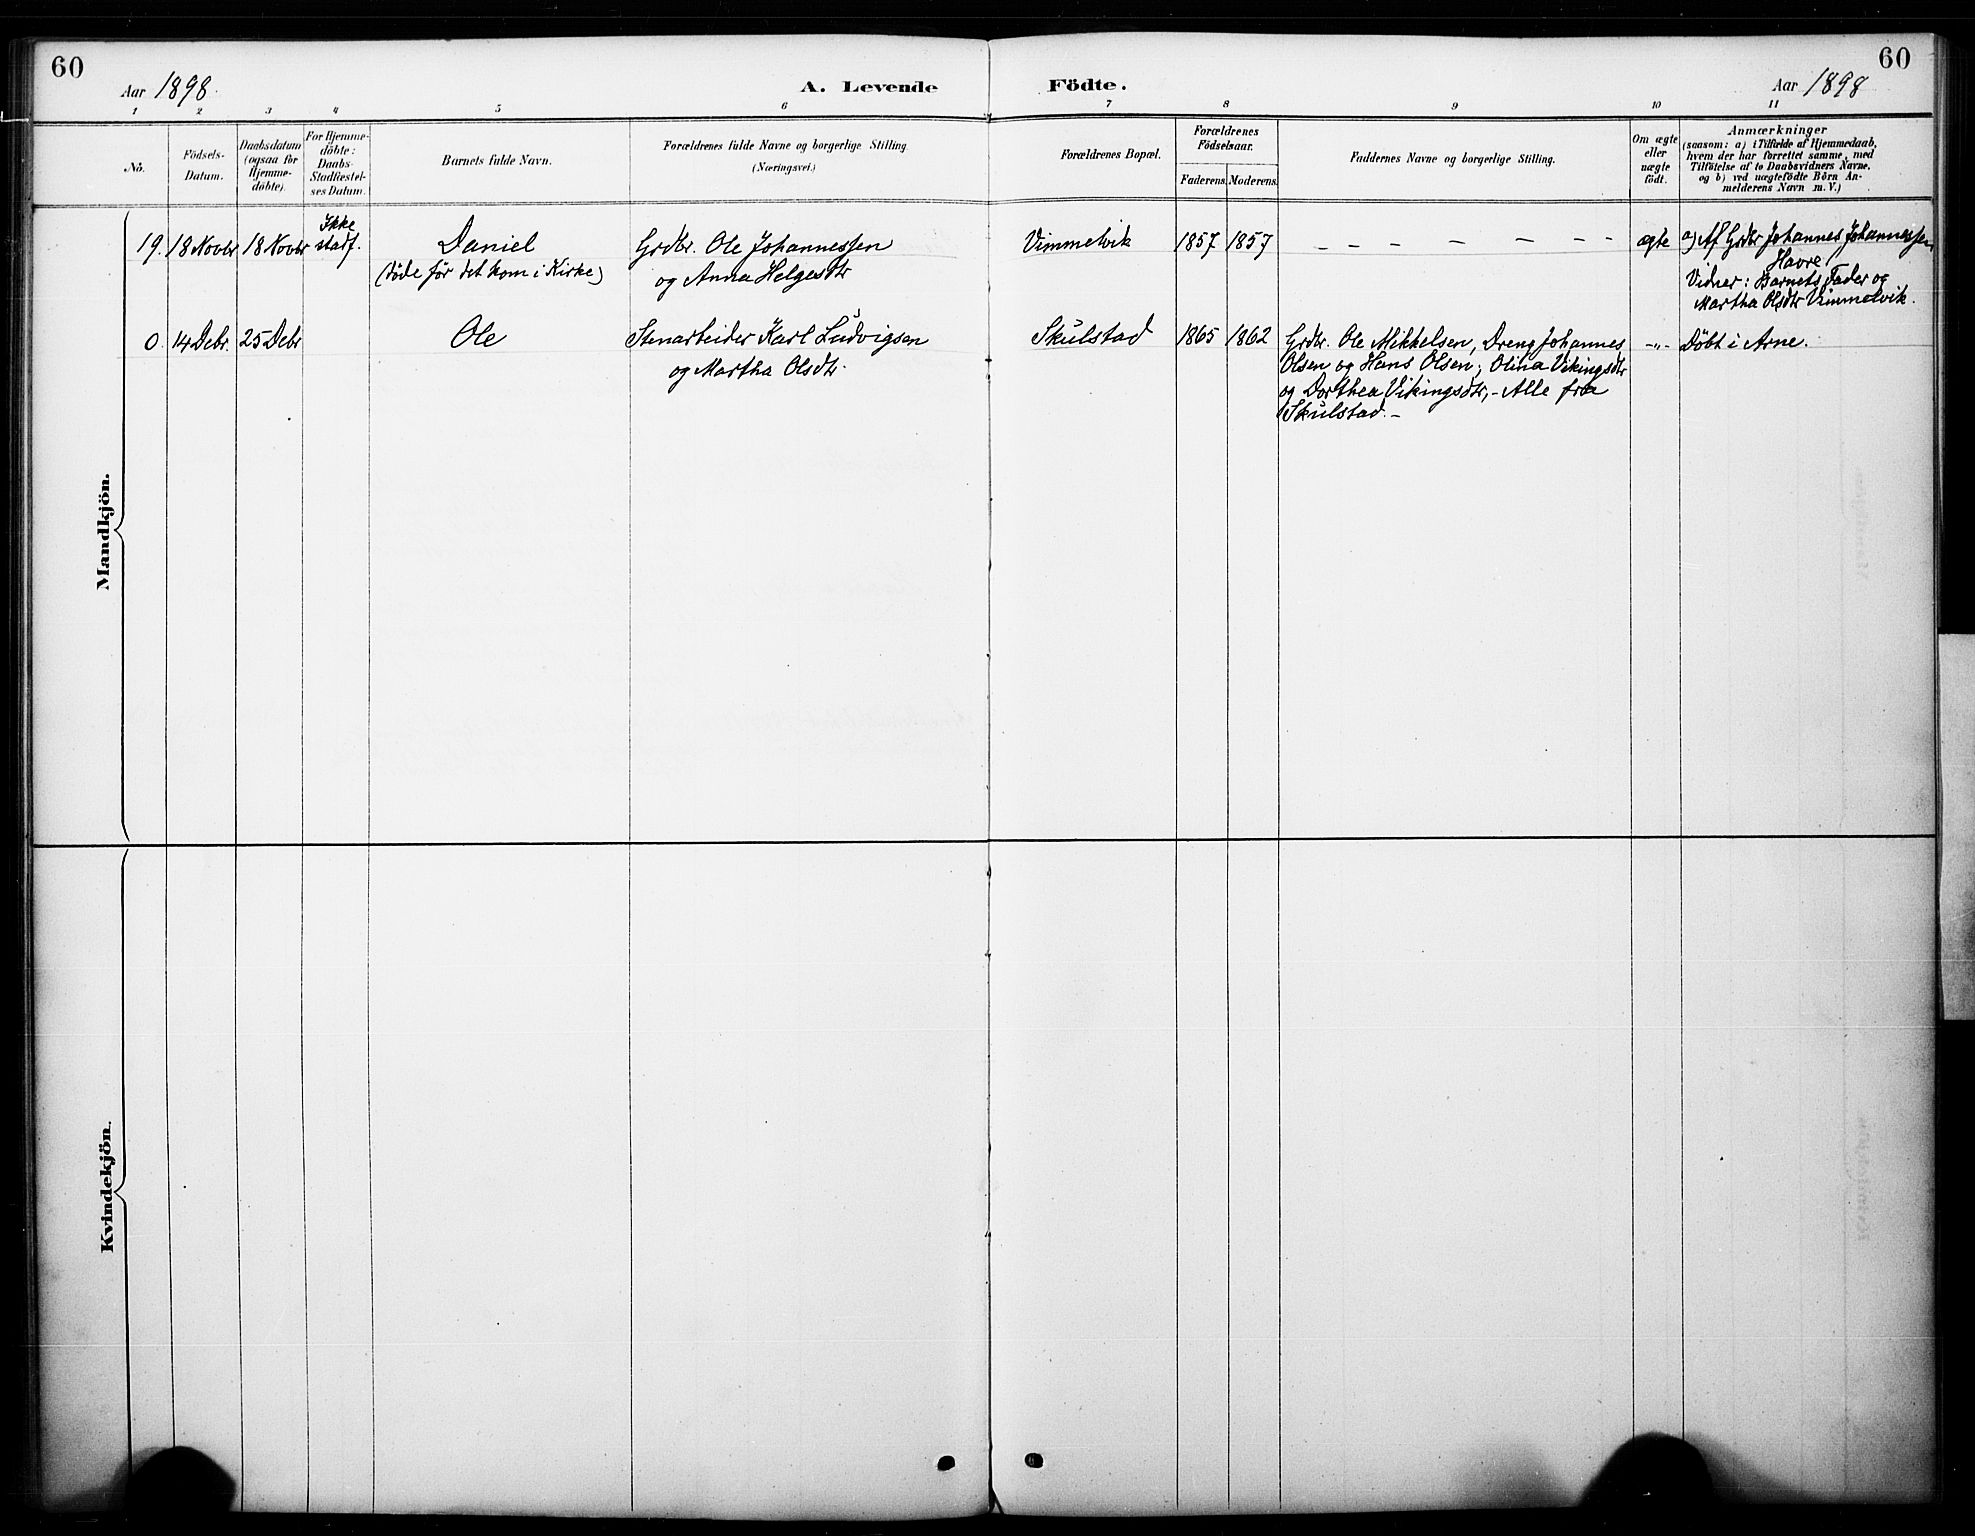 60
60
Aar 1898.
A. Levende Födte.
Aar 1898
1 2 3 4 5 6 7 8 9 10 11
No.
Födsels-
Datum.
Daabsdatum
(ogsaa for
Hjemme-
döbte).
For Hjemme-
döbte:
Daabs-
Stadfæstel-
ses Datum.
Barnets fulde Navn.
Forældrenes fulde Navne og borgerlige Stilling.
(Næringsvei.)
Forældrenes Bopæl.
Forældrenes
Födselsaar.
Faderens. Moderens.
Faddernes Navne og borgerlige Stilling.
Om ægte
eller
uægte
födt.
Anmærkninger
(saasom: a) i Tilfælde af Hjemmedaab,
hvem der har forrettet samme, med
Tilföielse af to Daabsvidners Navne,
og b) ved uægtefödte Börn An-
melderens Navn m. V.)
Mandkjön.
19. 18 Novbr 18 Novbr
Ikke
stadf.
Daniel
(døde før det kom i Kirke)
Grdbr. Ole Johannessen
og Anna Helgesdtr
Vimmelvik
1857 1857
– – – – – – – –
ægte
a) Af Grdbr Johannes Johannessen
Havre /
Vidner: Barnets Fader og
Martha Olsdtr Vimmelvik.
0. 14 Debr. 25 Debr
Ole
Stenarbeider Karl Ludvigsen
og Martha Olsdtr.
Skulstad
1865 1862
Grdbr. Ole Mikkelsen, Dreng Johannes
Olsen og Hans Olsen; Olina Vikingsdtr
og Dorthea Vikingsdtr, - Alle fra
Skulstad. -
-"-
Døbt i Arne.
Kvindekjön.